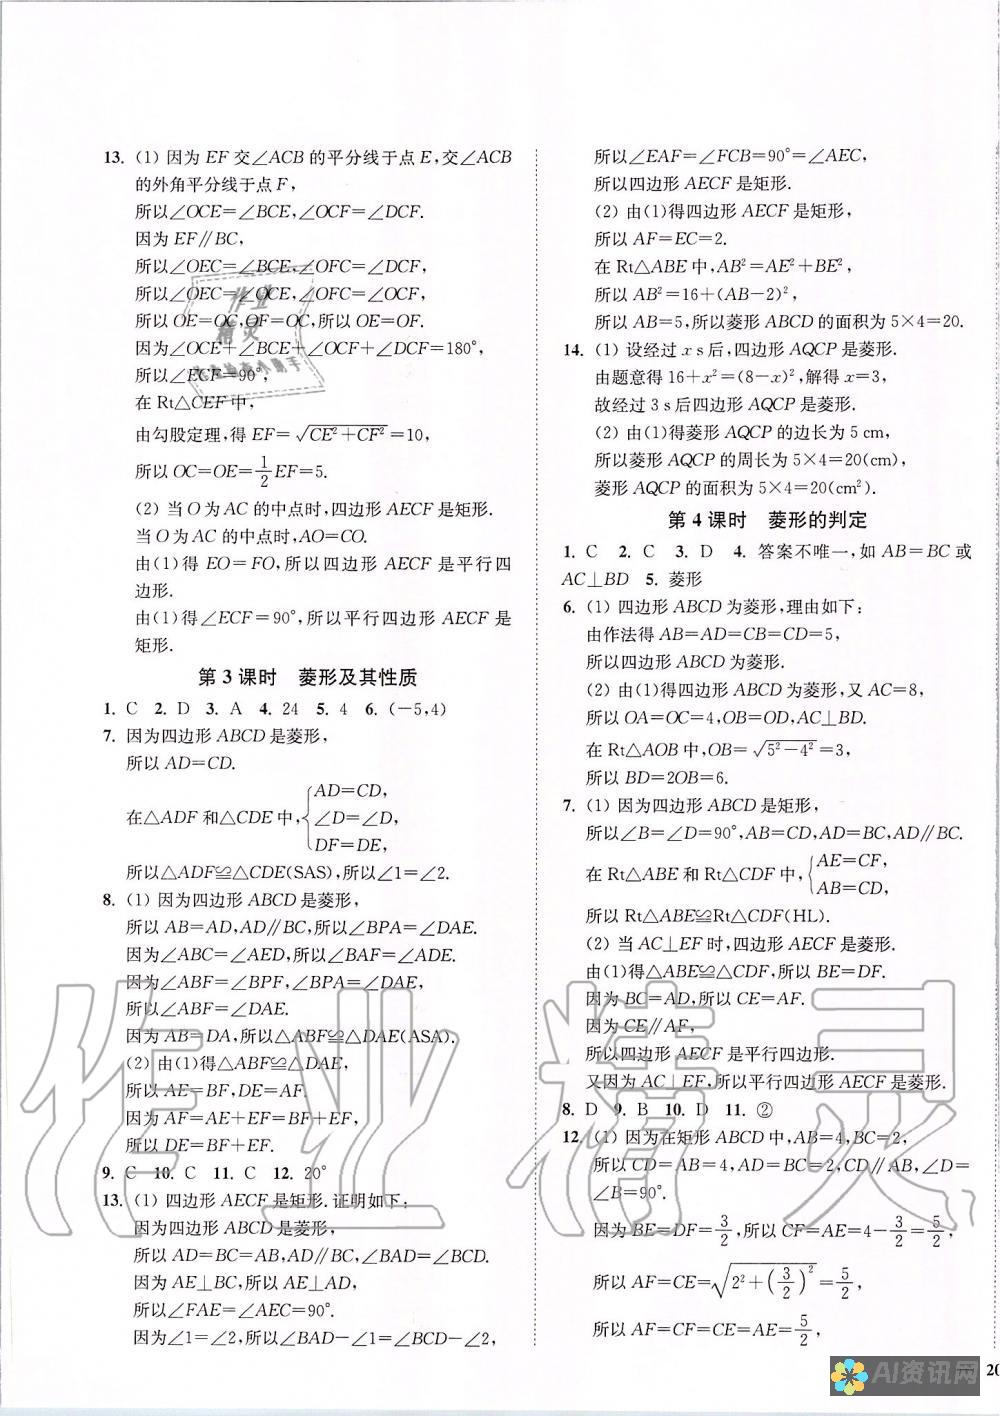 13. (1) 因为 EF 交∠ACB 的平分线于点 E,交∠ACB
的外角平分线于点 F,
所以∠OCE=∠BCE,∠OCF=∠DCF.
因为 EF∥BC,
所以∠OEC=∠BCE,∠OFC=∠DCF,
所以∠OEC=∠OCE,∠OFC=∠OCF,
所以 OE=OC,OF=OC,所以 OE=OF.
因为∠OCE+∠BCE+∠OCF+∠DCF=180°,
所以∠ECF=90°,
在 Rt△CEF 中,
由勾股定理,得 EF=√(CE²+CF²)=10,
所以 OC=OE=1/2 EF=5.
(2) 当 O 为 AC 的中点时,四边形 AECF 是矩形.
当 O 为 AC 的中点时,AO=CO.
由(1)得 EO=FO,所以四边形 AECF 是平行四
边形.
由(1)得∠ECF=90°,所以平行四边形 AECF 是
矩形.
第 3 课时 菱形及其性质
1. C 2. D 3. A 4. 24 5. 4 6. (-5,4)
7. 因为四边形 ABCD 是菱形,
所以 AD=CD.
在△ADF 和△CDE 中,{AD=CD,
∠D=∠D,
DF=DE,
所以△ADF≌△CDE(SAS),所以∠1=∠2.
8. (1) 因为四边形 ABCD 是菱形,
所以 AB=AD,AD∥BC,所以∠BPA=∠DAE.
因为∠ABC=∠AED,所以∠BAF=∠ADE.
因为∠ABF=∠BPF,∠BPA=∠DAE,
所以∠ABF=∠DAE.
因为 AB=DA,所以△ABF≌△DAE(ASA).
(2) 由(1)得△ABF≌△DAE,
所以 AE=BF,DE=AF.
因为 AF=AE+EF=BF+EF,
所以 DE=BF+EF.
9. C 10. C 11. C 12. 20°
13. (1) 四边形 AECF 是矩形. 证明如下:
因为四边形 ABCD 是菱形,
所以 AD=BC=AB,AD∥BC,∠BAD=∠BCD.
因为 AE⊥BC,所以 AE⊥AD,
所以∠FAE=∠AEC=90°.
因为∠1=∠2,所以∠BAD-∠1=∠BCD-∠2,
所以∠EAF=∠FCB=90°=∠AEC,
所以四边形 AECF 是矩形.
(2) 由(1)得四边形 AECF 是矩形,
所以 AF=EC=2.
在 Rt△ABE 中,AB²=AE²+BE²,
所以 AB²=16+(AB-2)²,
所以 AB=5,所以菱形 ABCD 的面积为 5×4=20.
14. (1) 设经过 x s 后,四边形 AQCP 是菱形.
由题意得 16+x²=(8-x)²,解得 x=3,
故经过 3 s 后四边形 AQCP 是菱形.
(2) 由(1)得菱形 AQCP 的边长为 5 cm,
所以菱形 AQCP 的周长为 5×4=20(cm),
菱形 AQCP 的面积为 5×4=20(cm²).
第 4 课时 菱形的判定
1. C 2. C 3. D 4. 答案不唯一,如 AB=BC 或
AC⊥BD 5. 菱形
6. (1) 四边形 ABCD 为菱形,理由如下:
由作法得 AB=AD=CB=CD=5,
所以四边形 ABCD 为菱形.
(2) 由(1)得四边形 ABCD 为菱形,又 AC=8,
所以 OA=OC=4,OB=OD,AC⊥BD.
在 Rt△AOB 中,OB=√(5²-4²)=3,
所以 BD=2OB=6.
7. (1) 因为四边形 ABCD 是矩形,
所以∠B=∠D=90°,AB=CD,AD=BC,AD∥BC.
在 Rt△ABE 和 Rt△CDF 中,{AE=CF,
AB=CD,
所以 Rt△ABE≌Rt△CDF(HL).
(2) 当 AC⊥EF 时,四边形 AECF 是菱形.
由(1)得△ABE≌△CDF,所以 BE=DF.
因为 BC=AD,所以 CE=AF.
因为 CE∥AF,
所以四边形 AECF 是平行四边形.
又因为 AC⊥EF,所以平行四边形 AECF 是菱形.
8. D 9. B 10. D 11. ②
12. (1) 因为在矩形 ABCD 中,AB=4,BC=2,
所以 CD=AB=4,AD=BC=2,CD∥AB,∠D=
∠B=90°.
因为 BE=DF=3/2,所以 CF=AE=4-3/2=5/2,
所以 AF=CE=√(2²+(3/2)²)=5/2,
所以 AF=CF=CE=AE=5/2,
作业精灵
AI资讯网
20